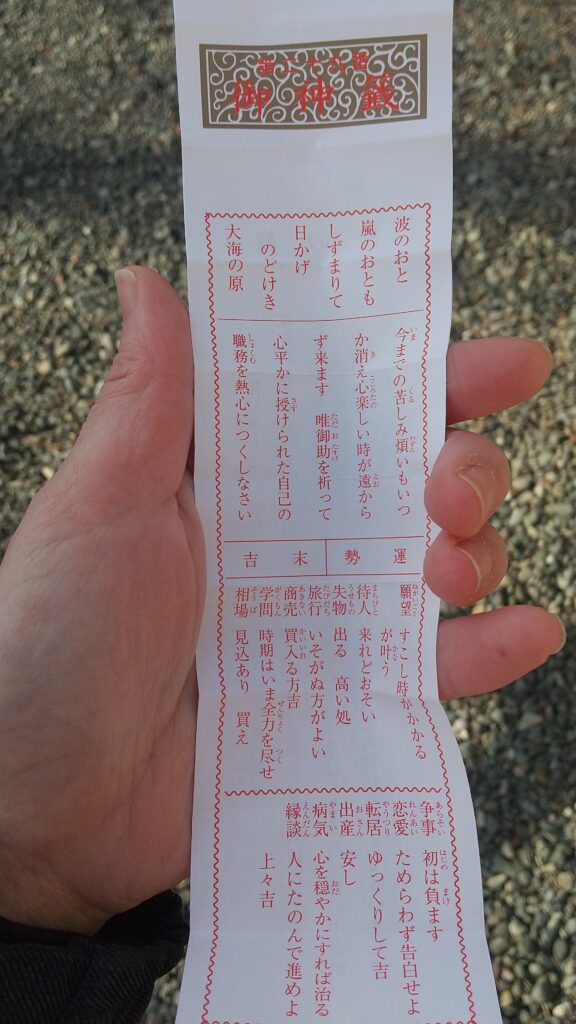 第二十九番
御神籤
波のおと
嵐のおとも
しずまりて
日かげ
のどけき
大海の原
今までの苦しみ煩いもいつ
か消え心楽しい時が遠から
ず来ます 唯御助を祈って
心平かに授けられた自己の
職務を熱心につくしなさい
運勢 末吉
願望 すこし時がかかる
が叶う
待人 来れどおそい
失物 出る 高い処
旅行 いそがぬ方がよい
商売 買入る方吉
学問 時期はいま全力を尽せ
相場 見込あり 買え
争事 初は負ます
恋愛 ためらわず告白せよ
転居 ゆっくりして吉
出産 安し
病気 心を穏やかにすれば治る
縁談 人にたのんで進めよ
上々吉